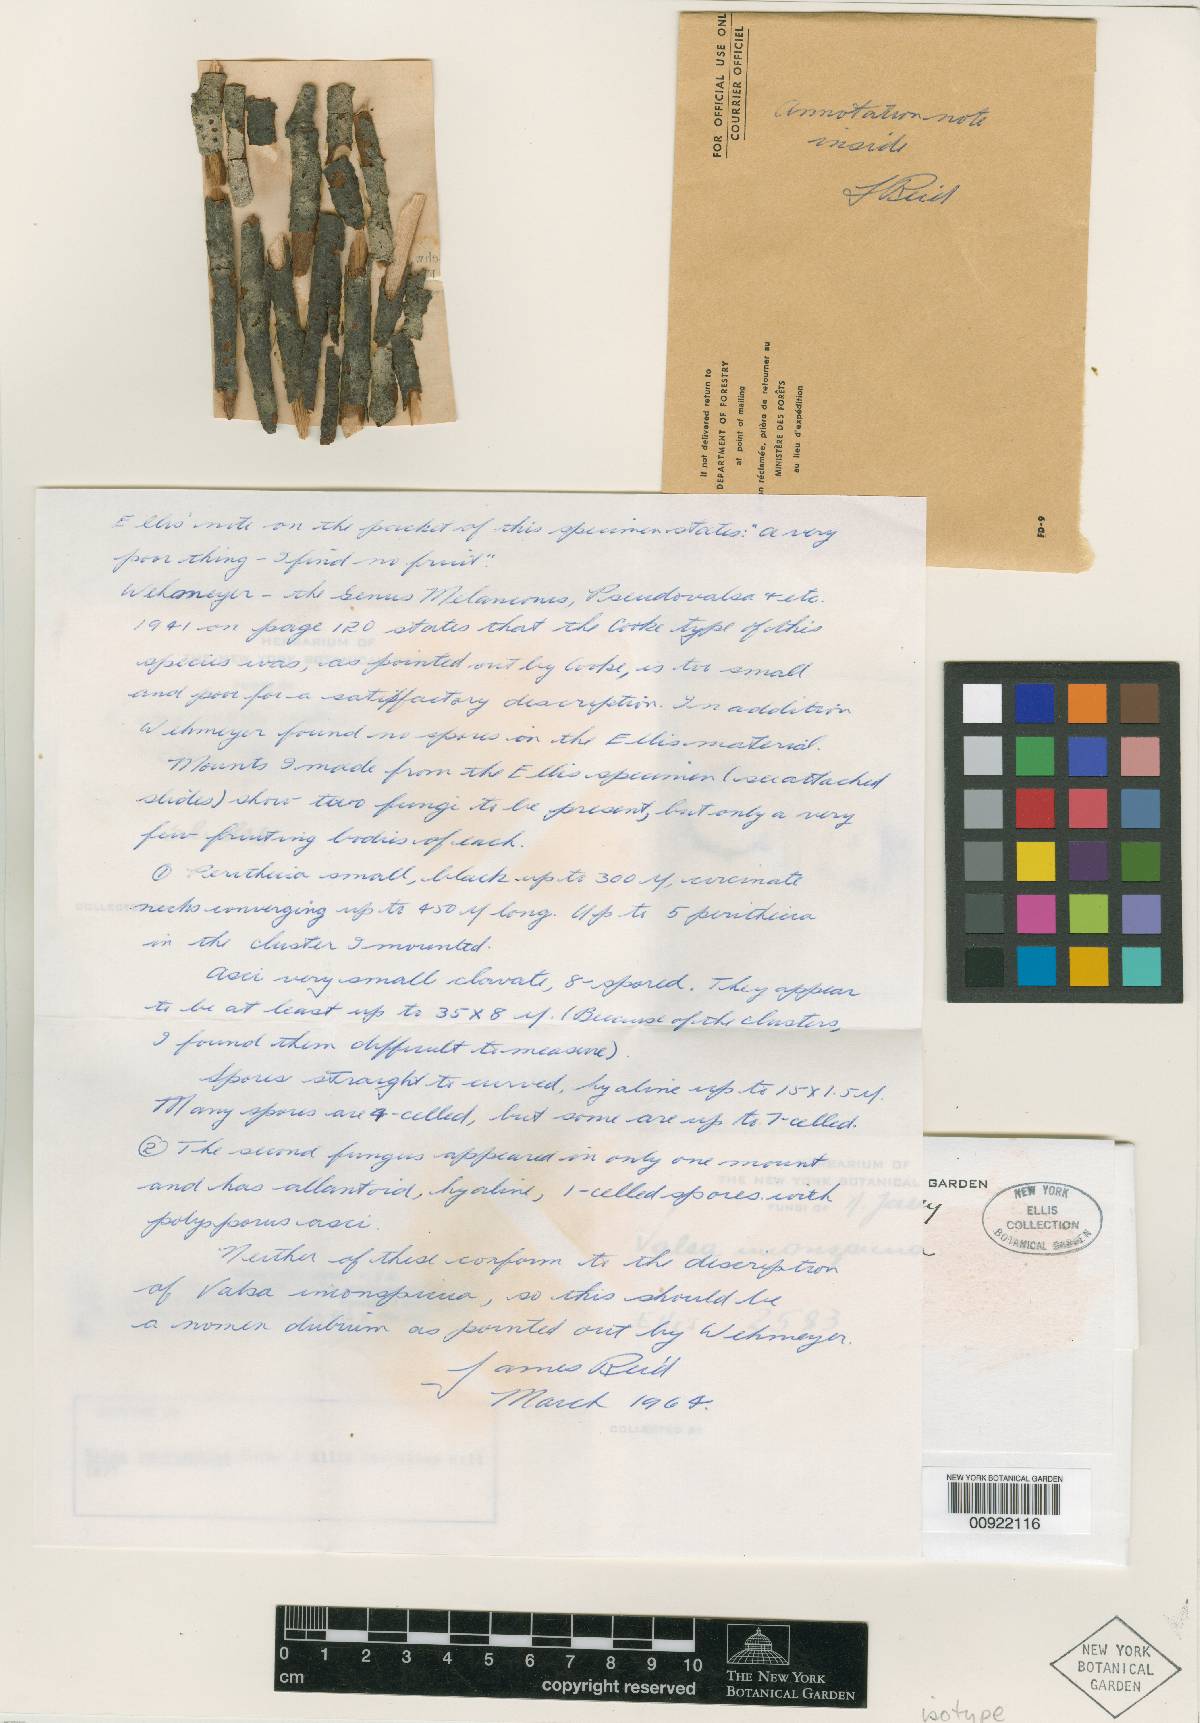 FOR OFFICIAL USE ONL
COURRIER OFFICIEL
Annotation note
inside
J Reid
If not delivered return to
DEPARTMENT OF FORESTRY
at point of mailing
n réclamée, prière de retourner au
MINISTÈRE DES FORÊTS
au lieu d'expédition
FD-9
Ellis' note on the packet of this specimen states: "a very
poor thing - I find no fruit".
Wehmeyer - the Genus Melanconis, Pseudovalsa & etc.
1941 on page 120 states that the Cooke type of this
species was, as pointed out by Cooke, is too small
and poor for a satisfactory description. In addition
Wehmeyer found no spores in the Ellis material.
Mounts I made from the Ellis specimen (see attached
slides) show two fungi to be present, but only a very
few fruiting bodies of each.
① Perithecia small, black up to 300 µ, circinate
necks converging up to 450 µ long. Up to 5 perithecia
in the cluster I mounted.
Asci very small clavate, 8-spored. They appear
to be at least up to 35 x 8 µ. (Because of the clusters,
I found them difficult to measure).
Spores straight to curved, hyaline up to 15 x 1.5 µ.
Many spores are 4-celled, but some are up to 7-celled.
② The second fungus appeared in only one mount
and has allantoid, hyaline, 1-celled spores with
polysporus asci.
Neither of these conform to the description
of Valsa inconspicua, so this should be
a nomen dubium as pointed out by Wehmeyer.
James Reid
March 1964.
HERBARIUM OF
THE NEW YORK BOTANICAL GARDEN
FUNGI OF N. Jersey
Valsa inconspicua
2583
COLLECTED BY
NEW YORK
ELLIS
COLLECTION
BOTANICAL GARDEN
NEW YORK BOTANICAL GARDEN
00922116
0 1 2 3 4 5 6 7 8 9 10
cm
copyright reserved
THE NEW YORK
BOTANICAL GARDEN
NEW YORK
BOTANICAL
GARDEN
isotype